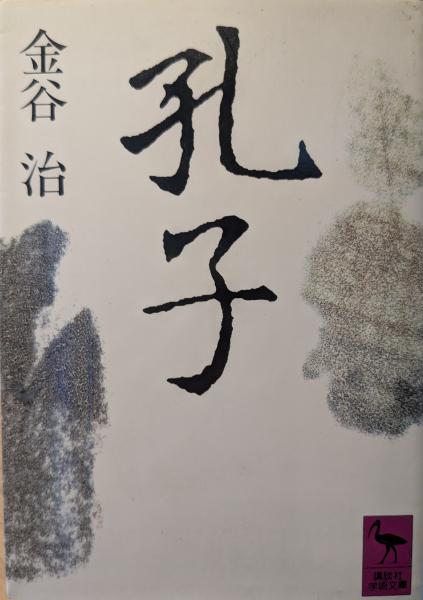 孔子
金谷 治
講談社
学術文庫